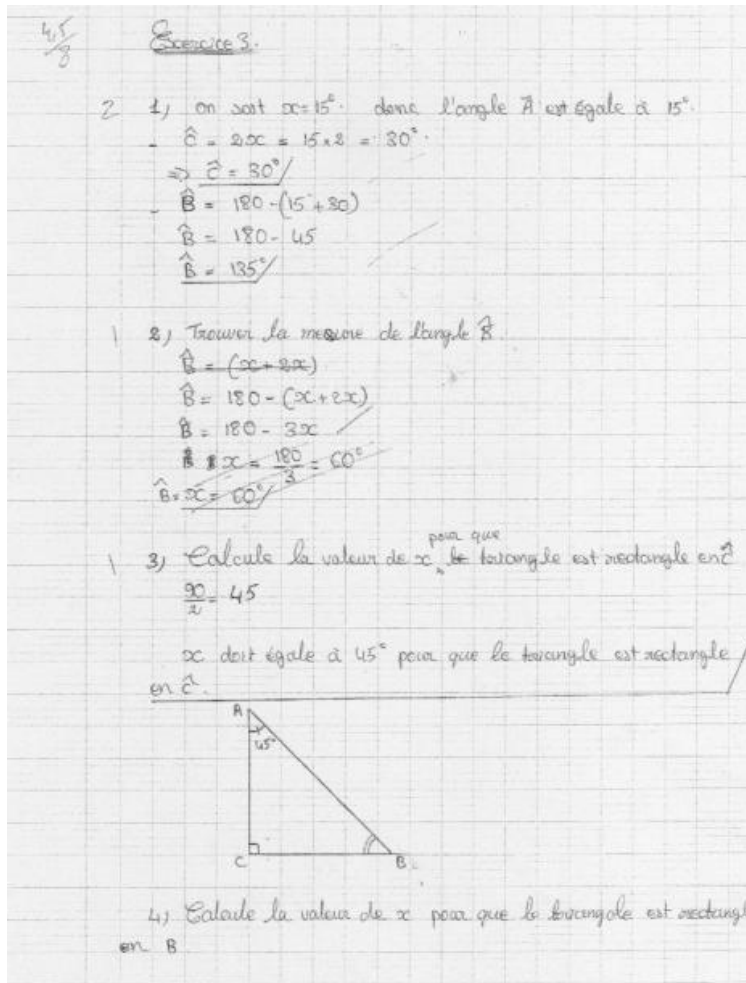 4,5/8
Exercice 3.
2 1) on sait x=15°. donc l'angle Â est égale à 15°.
- Ĉ = 2x = 15×2 = 30°.
=> Ĉ = 30°
- B̂ = 180-(15+30)
B̂ = 180-45
B̂ = 135°
1 2) Trouver la mesure de l'angle B̂.
B̂ = (x+2x)
B̂ = 180-(x+2x)
B̂ = 180-3x
x = 180/3 = 60°
B̂ = x = 60°
pour que
1 3) Calcule la valeur de x le triangle est rectangle en Ĉ
90/2 = 45
x doit égale à 45° pour que le triangle est rectangle
en Ĉ.
A
45°
C B
4) Calcule la valeur de x pour que le triangole est rectangl
en B